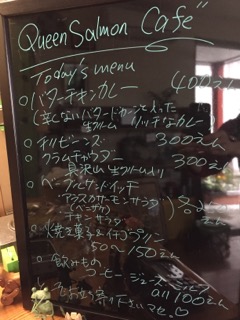 Queen Salmon Cafe"
Today's menu
○バターチキンカレー 400えん
(辛くないバターとカシューと入った
生クリーム リッチなカレー)
○チリビーンズ 300えん
○クラムチャウダー 300えん
具沢山 生クリーム入り
○ベーグルサンドイッチ
・アラスカサーモンサラダ
(ベーグル)
チキンサラダ
各 えん
○焼き菓子&イチゴプリン
50〜150えん
○飲みもの
コーヒー ジュース ミルク
all 100えん
立ち寄り下さいマセ♡